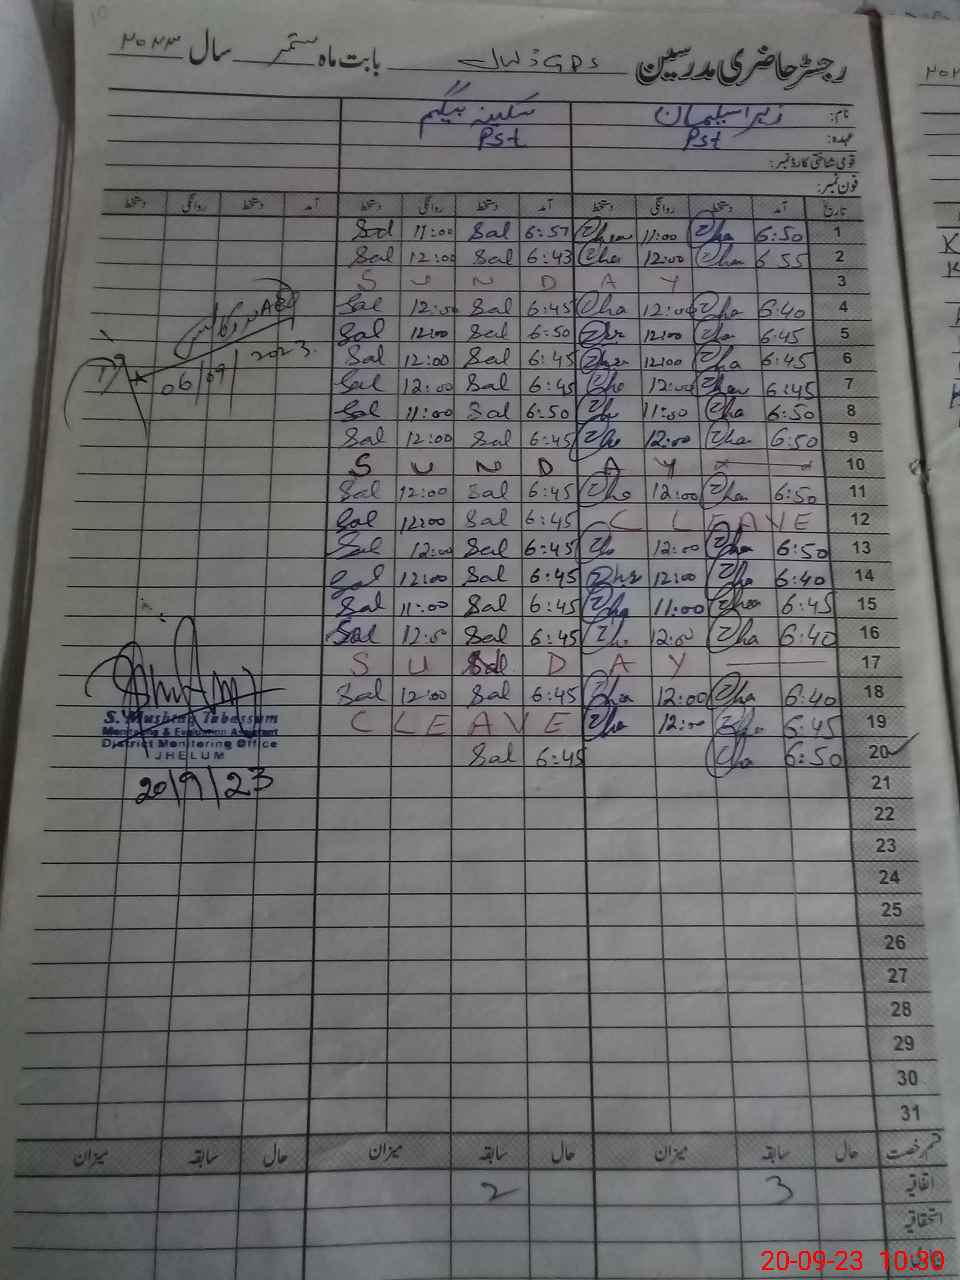 رجسٹر حاضری مدرسین GPS بابت ماہ ستمبر سال ۲۰۲۳
نام: زہرا سلیمان سکینہ بیگم
عہدہ: Pst Pst
قومی شناختی کارڈ نمبر:
فون نمبر:
تاریخ آمد دستخط روانگی دستخط آمد دستخط روانگی دستخط آمد دستخط روانگی دستخط
1 6:50 Zha 11:00 6:57 Sal 11:00 Sal
2 6:55 Zha 12:00 Zha 6:43 Sal 12:00 Sal
3 S U N D A Y
4 6:40 Zha 12:00 Zha 6:45 Sal 12:00 Sal
5 6:45 Zha 12:00 6:50 Sal 12:00 Sal
6 6:45 Zha 12:00 6:45 Sal 12:00 Sal
7 6:45 Zha 12:00 Zha 6:45 Sal 12:00 Sal
8 6:50 Zha 11:00 6:50 Sal 11:00 Sal
9 6:50 Zha 12:00 Zha 6:45 Sal 12:00 Sal
10 S U N D A Y
11 6:50 Zha 12:00 Zha 6:45 Sal 12:00 Sal
12 C LEAVE 6:45 Sal 12:00 Sal
13 6:50 Zha 12:00 6:45 Sal 12:00 Sal
14 6:40 Zha 12:00 6:45 Sal 12:00 Sal
15 6:45 11:00 Zha 6:45 Sal 11:00 Sal
16 6:40 Zha 12:00 6:45 Sal 12:00 Sal
17 S U N D A Y
18 6:40 Zha 12:00 Zha 6:45 Sal 12:00 Sal
19 6:45 Zha 12:00 Zha C LEAVE
20 6:50 Zha 6:45 Sal
21
22
23
24
25
26
27
28
29
30
31
06/09/2023
S. Mushtaq Tabassum
Monitoring & Evaluation Assistant
District Monitoring Office
JHELUM
20/9/23
قسم رخصت حال سابقہ میزان حال سابقہ میزان حال سابقہ میزان
اتفاقیہ 3 2
استحقاقیہ
20-09-23 10:30